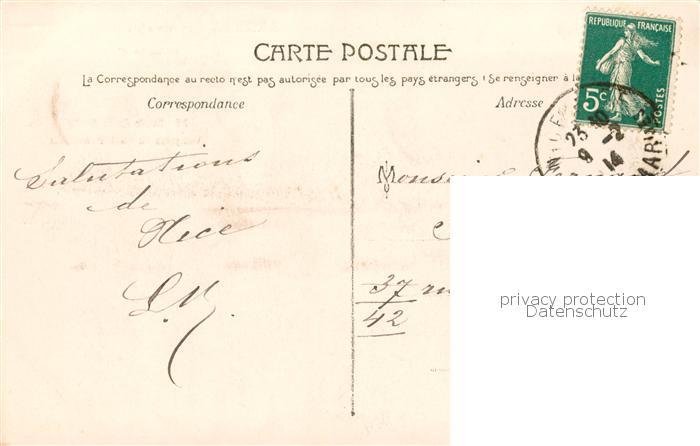 CARTE POSTALE
La Correspondance au recto n'est pas autorisée par tous les pays étrangers (Se renseigner à la
Correspondance
Adresse
REPUBLIQUE FRANÇAISE
5c
POSTES
23 10
9 -2
14
MARI
Salutations
de
Nice
L.M.
Monsieur
37 ru
42
privacy protection
Datenschutz